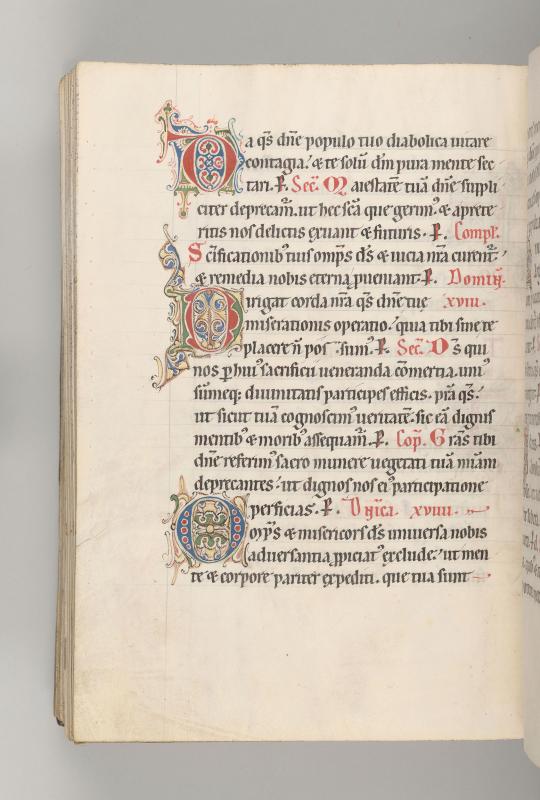 Da qs dn̄e populo tuo diabolica uitare
contagia. & te solū dn̄m pura mente sec
tari. P. Secr̄. Maiestatē tuā dn̄e suppli
citer deprecam̄. ut hec sc̄a que gerimꝰ. & aprete
ritis nos delictis exuant & futuris. P. Compl̄.
Sc̄ificationibꝰ tuis omp̄s d̄s & uicia nr̄a curent̄.
& remedia nobis eterna ꝓueniant. P. Domin̄.
Dirigat corda nr̄a qs dn̄e tue xviii.
miserationis operatio. quia tibi sine te
placere n̄ possumꝰ. P. Secr̄. Ds qui
nos ꝑ huiꝰ sacrificii ueneranda cōmertia. uniꝰ
sūmeq; diuinitatis participes efficis. pr̄a qs.
ut sicut tuā cognoscimꝰ ueritatē. sic eā dignis
mentibꝰ & moribꝰ assequam̄. P. Cop̄. Grās tibi
dn̄e referimꝰ sacro munere uegetati tuā m̄iam
deprecantes. ut dignos nos eiꝰ participatione
perficias. P. Dn̄ica. xviiii.
Omp̄s & misericors ds uniuersa nobis
aduersantia ꝓpiciatꝰ exclude. ut men
te & corpore pariter expediti. que tua sunt